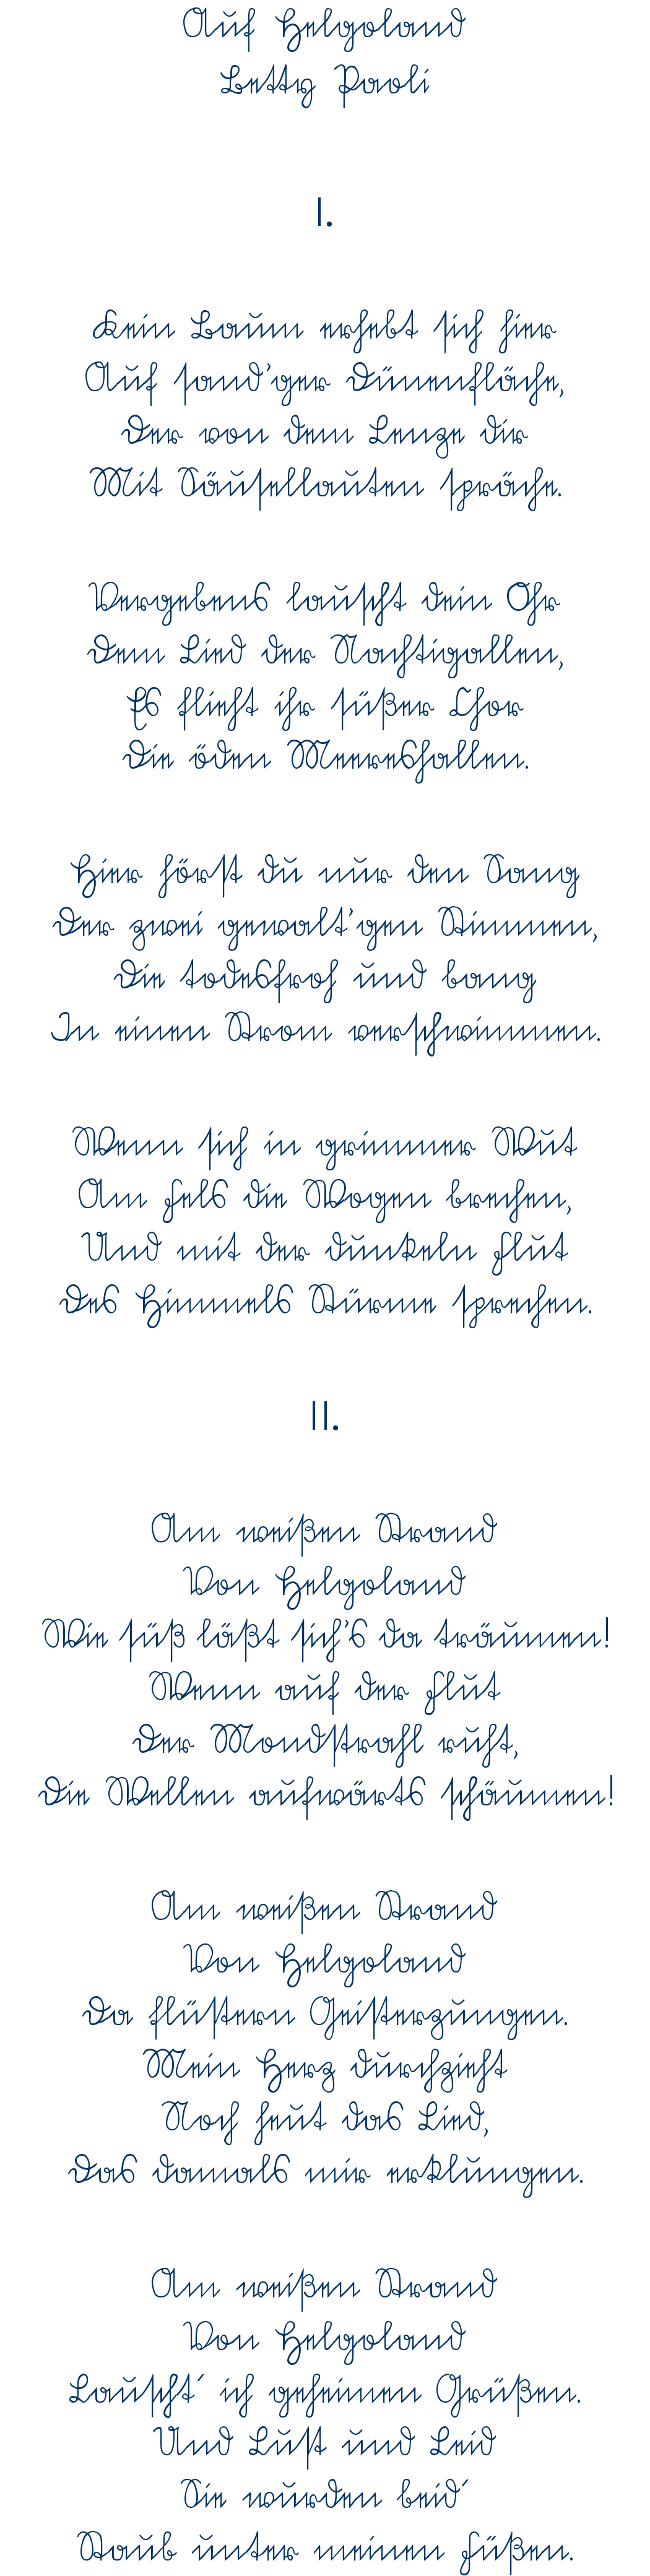 Auf Helgoland
Betty Paoli
I.
Kein Baum erhebt sich hier
Auf sand'ger Dünenfläche,
Der von dem Lenze dir
Mit Säusellauten spräche.
Vergebens lauscht dein Ohr
Dem Lied der Nachtigallen,
Es flieht ihr süßer Chor
Die öden Meereshallen.
Hier hörst du nur den Sang
Der zwei gewalt'gen Stimmen,
Die todesfroh und bang
In einen Strom verschwimmen.
Wenn sich in grimmer Wut
Am Fels die Wogen brechen,
Und mit der dunkeln Flut
Des Himmels Stürme sprechen.
II.
Am weißen Strand
Von Helgoland
Wie süß läßt sich's da träumen!
Wenn auf der Flut
Der Mondstrahl ruht,
Die Wellen aufwärts schäumen!
Am weißen Strand
Von Helgoland
Da flüstern Geisterzungen.
Mein Herz durchzieht
Noch heut das Lied,
Das damals mir erklungen.
Am weißen Strand
Von Helgoland
Lauscht´ ich geheimen Grüßen.
Und Lust und Leid
Sie wurden beid´
Staub unter meinen Füßen.